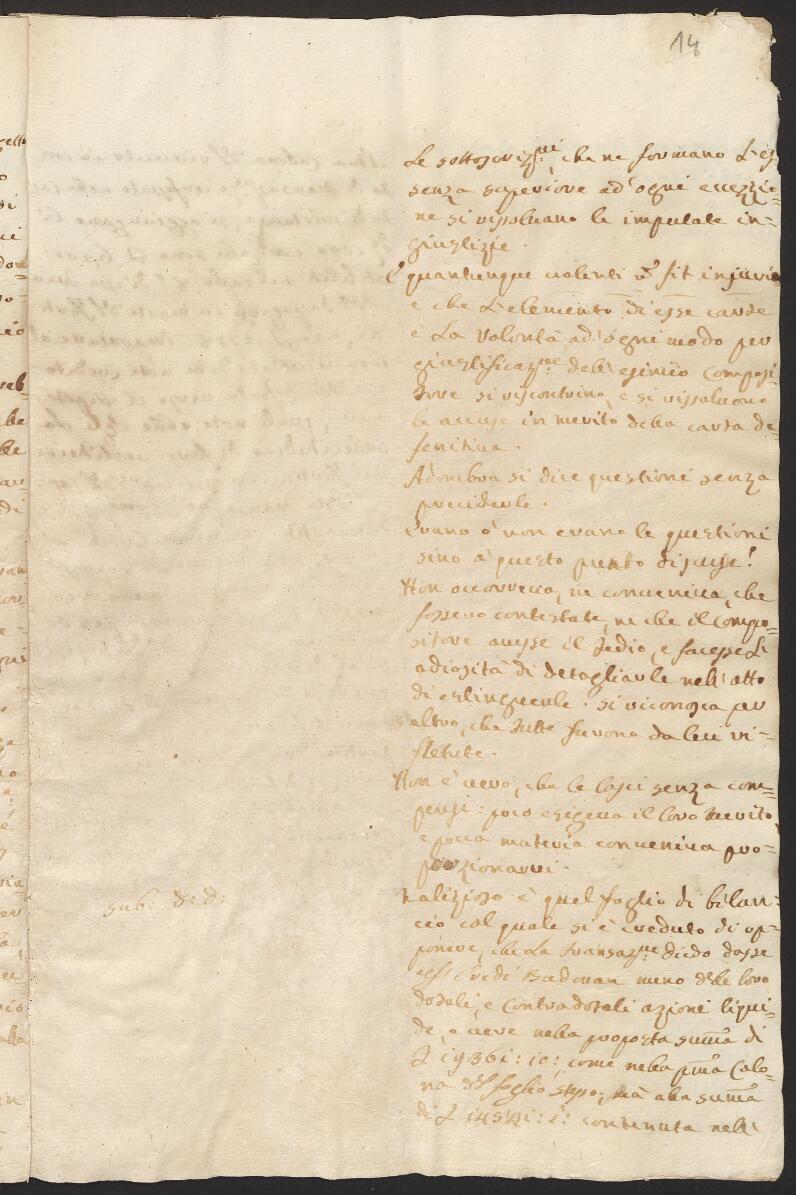 14
Le sottoscriz.ni che ne formano l'es
senza superiore ad' ogni eccezzio=
ne si rissolvano le imputate in=
giustizie.
E quantunque volenti n' fit injuria
e che L'elemento di esse carte
è La Volontà ad' ogni modo per
giustificaz.ne dell' esimio Composi
tore si riscontrino, e si rissolvono
le accuse in merito della carta de=
fenitiva.
Adombra si dice questioni senza
preciderle.
Erano ò non erano le questioni
sino à questo punto discusse!
Non occorreva, ne conveniva, che
fossero contestate, ne che il Compo=
sitore avesse il Tedio, e facesse Li
adiosità di detagliarle nell' atto
di estinguerle. si riconosca per
altro, che tutte furono da lui ri=
fletute.
Non è vero, che le lasci senza com=
pensi: poco esigeva il loro merito,
e poca materia conveniva pro=
porzionarvi.
sub: D: D:
Malizioso è quel foglio di bilan=
cio col quale si è creduto di op=
ponere, che La transaz.ne Diedo dasse
agl' Eredi Badouan meno delle loro
dotali, e Contradotali azioni liqui=
de, e vere nella proposta summa di
L 19361: 10: come nella p.ma Colo=
na del foglio stesso, mà alla summa
di L 14541: 1: contenuta nell'